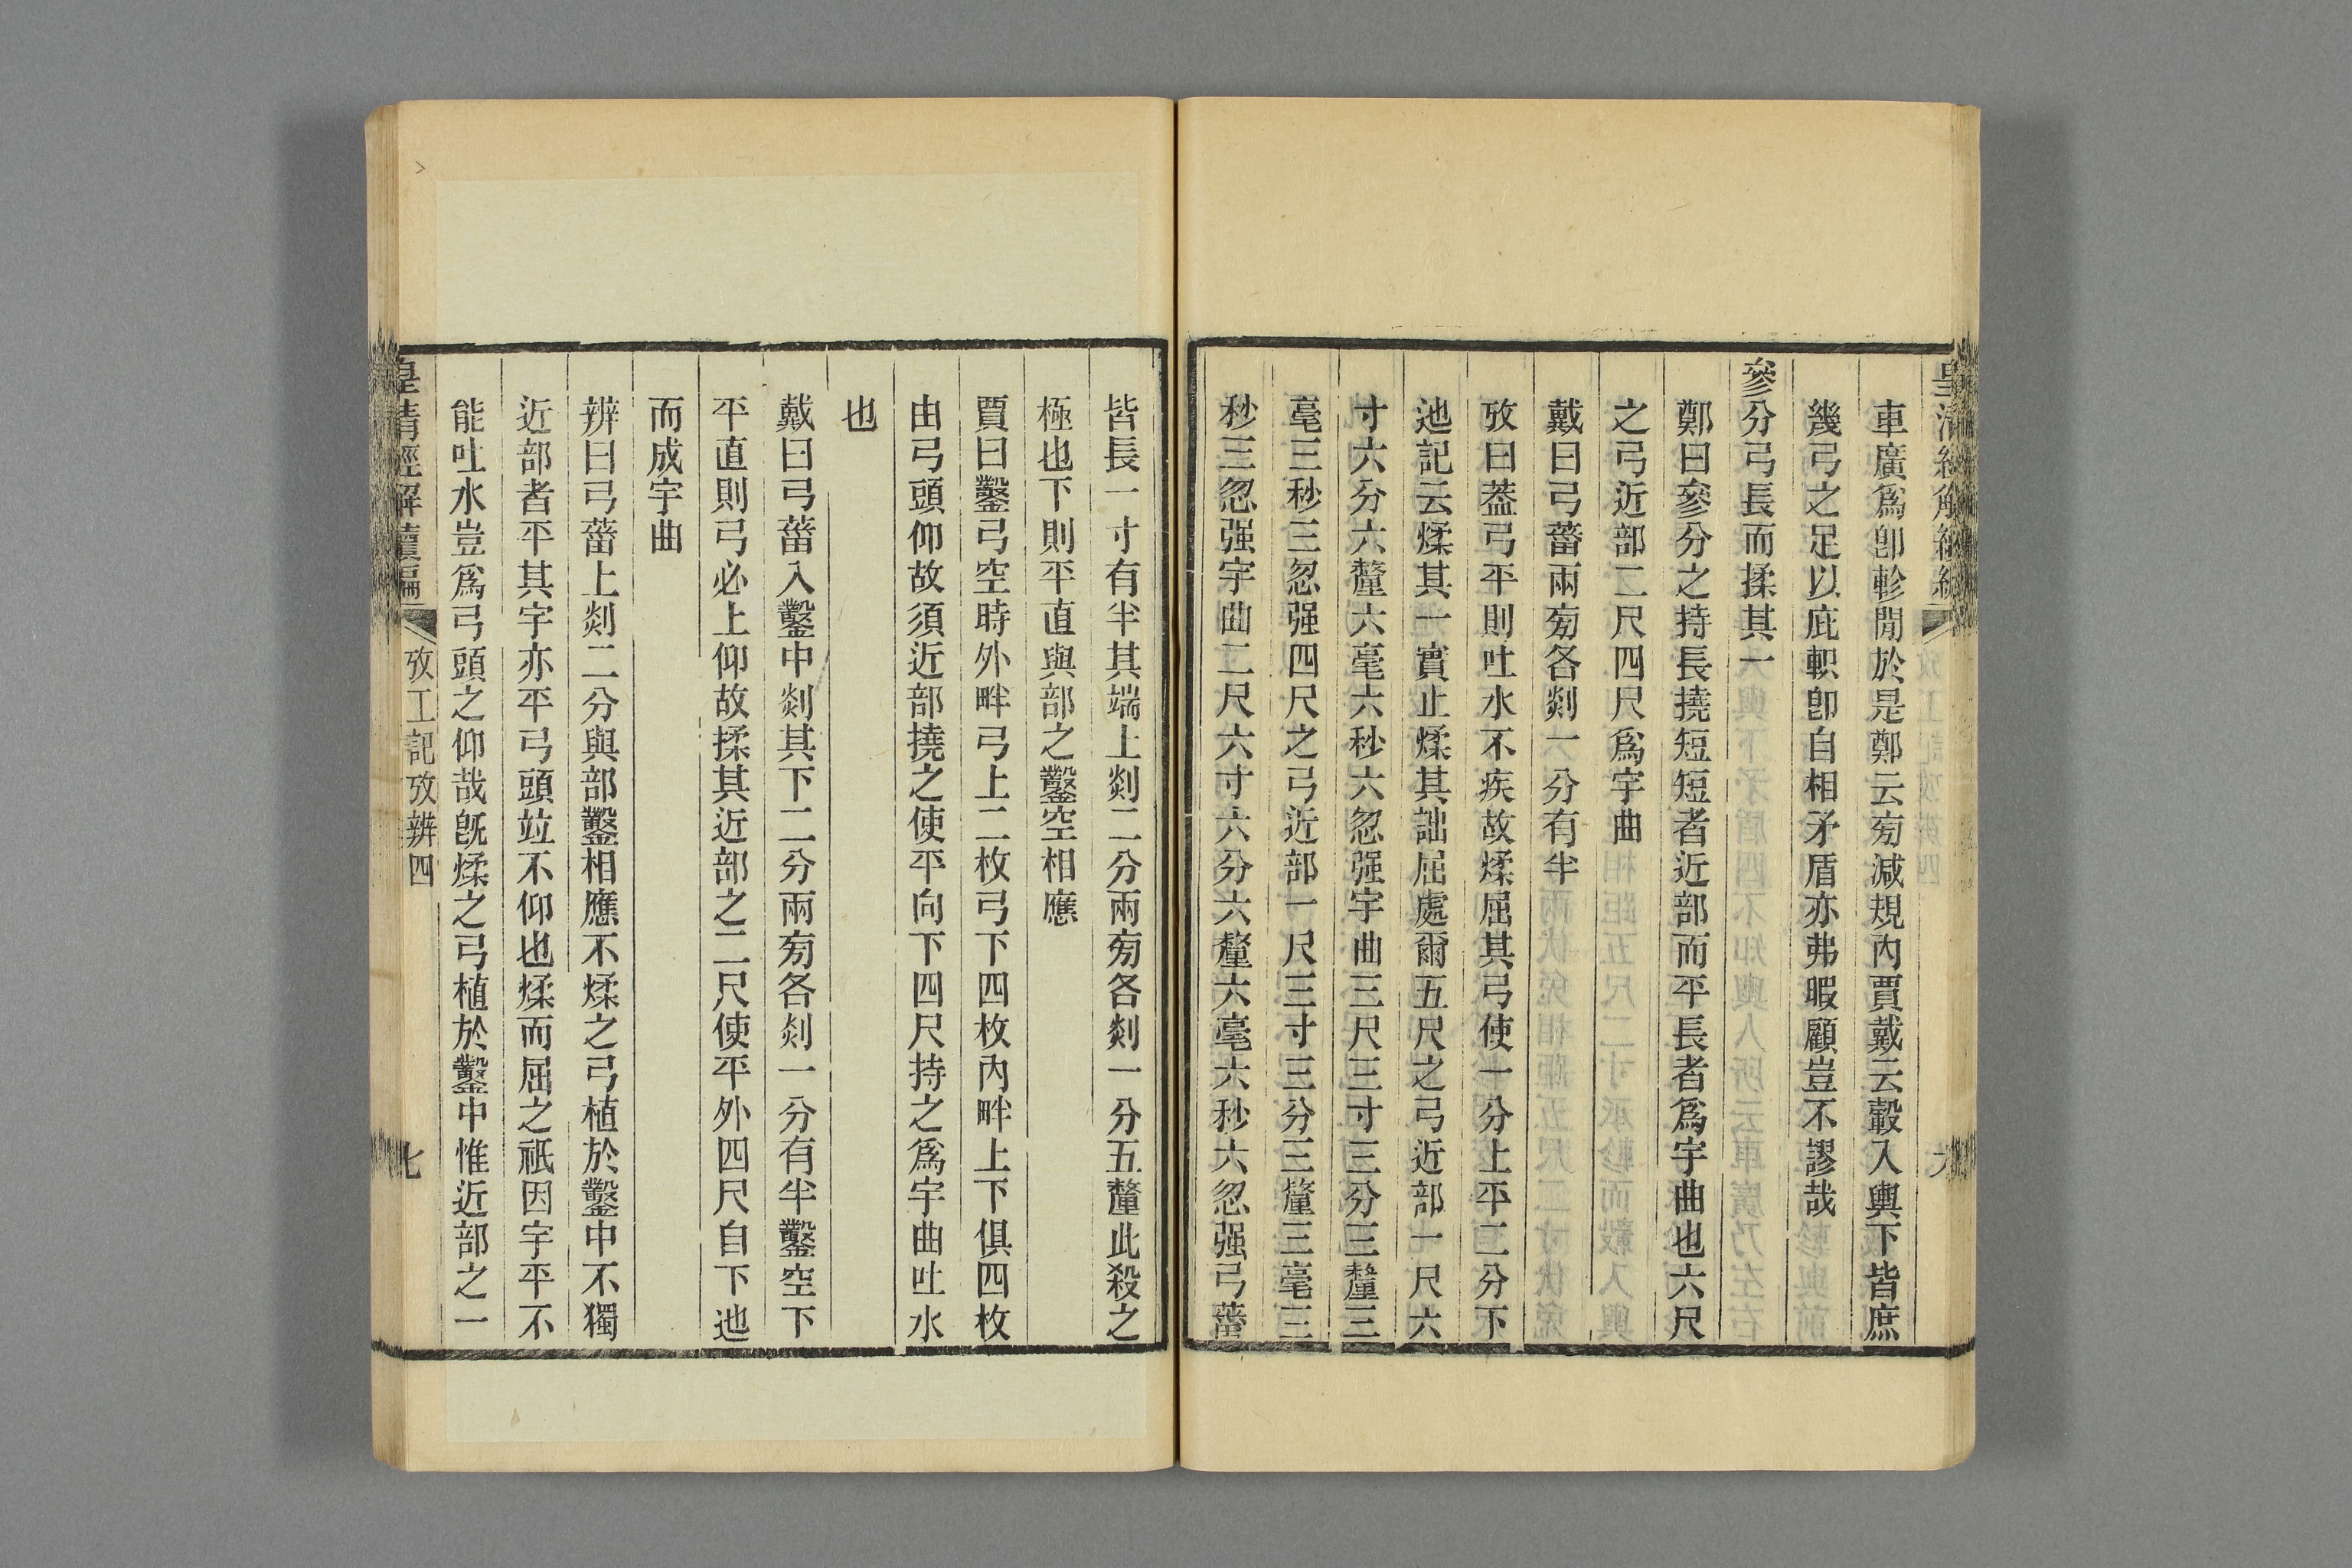 車廣爲卽軫閒於是鄭云㫄減規內賈戴云轂入輿下皆庶
幾弓之足以庇軹卽自相矛盾亦弗暇顧豈不謬哉
參分弓長而揉其一
鄭曰參分之持長撓短短者近部而平長者爲宇曲也六尺
之弓近部二尺四尺爲宇曲
戴曰弓菑兩㫄各剡一分有半
攷曰葢弓平則吐水不疾故煣屈其弓使一分上平二分下
迆記云煣其一實止煣其詘屈處爾五尺之弓近部一尺六
寸六分六釐六毫六秒六忽强宇曲三尺三寸三分三釐三
毫三秒三忽强四尺之弓近部一尺三寸三分三釐三毫三
秒三忽强宇曲二尺六寸六分六釐六毫六秒六忽强弓菑
皆長一寸有半其端上剡二分兩㫄各剡一分五釐此殺之
極也下則平直與部之鑿空相應
賈曰鑿弓空時外畔弓上二枚弓下四枚內畔上下俱四枚
由弓頭仰故須近部撓之使平向下四尺持之爲宇曲吐水
也
戴曰弓菑入鑿中剡其下二分兩㫄各剡一分有半鑿空下
平直則弓必上仰故揉其近部之二尺使平外四尺自下迆
而成宇曲
辨曰弓菑上剡二分與部鑿相應不煣之弓植於鑿中不獨
近部者平其宇亦平弓頭竝不仰也煣而屈之祇因宇平不
能吐水豈爲弓頭之仰哉旣煣之弓植於鑿中惟近部之一
皇清經解續編
攷工記攷辨四
七